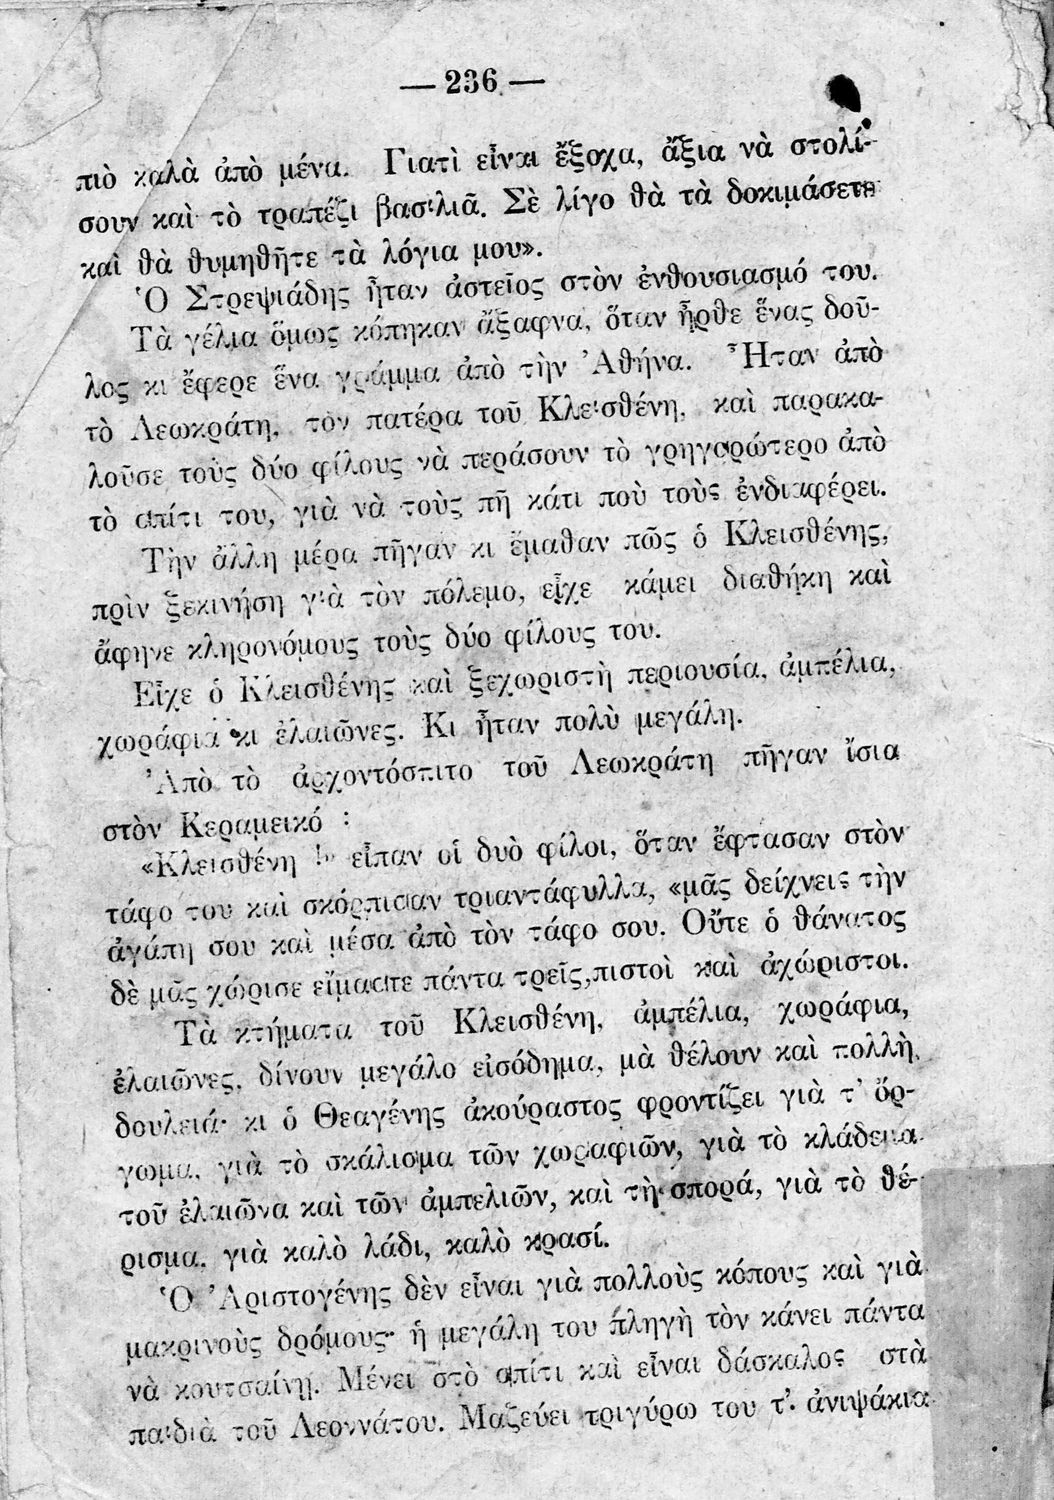 — 236 —
πιὸ καλὰ ἀπὸ μένα. Γιατὶ εἶναι ἔξοχα, ἄξια νὰ στολί-
σουν καὶ τὸ τραπέζι βασιλιᾶ. Σὲ λίγο θὰ τὰ δοκιμάσετε
καὶ θὰ θυμηθῆτε τὰ λόγια μου».
Ὁ Στρεψιάδης ἦταν ἀστεῖος στὸν ἐνθουσιασμό του.
Τὰ γέλια ὅμως κόπηκαν ἄξαφνα, ὅταν ἦρθε ἕνας δοῦ-
λος κι ἔφερε ἕνα γράμμα ἀπὸ τὴν Ἀθήνα. Ἦταν ἀπὸ
τὸ Λεωκράτη, τὸν πατέρα τοῦ Κλεισθένη, καὶ παρακα-
λοῦσε τοὺς δύο φίλους νὰ περάσουν τὸ γρηγορώτερο ἀπὸ
τὸ σπίτι του, γιὰ νὰ τοὺς πῆ κάτι ποὺ τοὺς ἐνδιαφέρει.
Τὴν ἄλλη μέρα πῆγαν κι ἔμαθαν πῶς ὁ Κλεισθένης,
πρὶν ξεκινήση γιὰ τὸν πόλεμο, εἶχε κάμει διαθήκη καὶ
ἄφηνε κληρονόμους τοὺς δύο φίλους του.
Εἶχε ὁ Κλεισθένης καὶ ξεχωριστὴ περιουσία, ἀμπέλια,
χωράφια κι ἐλαιῶνες. Κι ἦταν πολὺ μεγάλη.
Ἀπὸ τὸ ἀρχοντόσπιτο τοῦ Λεωκράτη πῆγαν ἴσια
στὸν Κεραμεικό :
«Κλεισθένη !» εἶπαν οἱ δυὸ φίλοι, ὅταν ἔφτασαν στὸν
τάφο του καὶ σκόρπισαν τριαντάφυλλα, «μᾶς δείχνεις τὴν
ἀγάπη σου καὶ μέσα ἀπὸ τὸν τάφο σου. Οὔτε ὁ θάνατος
δὲ μᾶς χώρισε εἴμαστε πάντα τρεῖς, πιστοὶ καὶ ἀχώριστοι.
Τὰ κτήματα τοῦ Κλεισθένη, ἀμπέλια, χωράφια,
ἐλαιῶνες, δίνουν μεγάλο εἰσόδημα, μὰ θέλουν καὶ πολλὴ
δουλειά· κι ὁ Θεαγένης ἀκούραστος φροντίζει γιὰ τ' ὄρ-
γωμα, γιὰ τὸ σκάλισμα τῶν χωραφιῶν, γιὰ τὸ κλάδεμα
τοῦ ἐλαιῶνα καὶ τῶν ἀμπελιῶν, καὶ τὴ σπορά, γιὰ τὸ θέ-
ρισμα, γιὰ καλὸ λάδι, καλὸ κρασί.
Ὁ Ἀριστογένης δὲν εἶναι γιὰ πολλοὺς κόπους καὶ γιὰ
μακρινοὺς δρόμους· ἡ μεγάλη του πληγὴ τὸν κάνει πάντα
νὰ κουτσαίνη. Μένει στὸ σπίτι καὶ εἶναι δάσκαλος στὰ
παιδιὰ τοῦ Λεοννάτου. Μαζεύει τριγύρω του τ' ἀνιψάκια